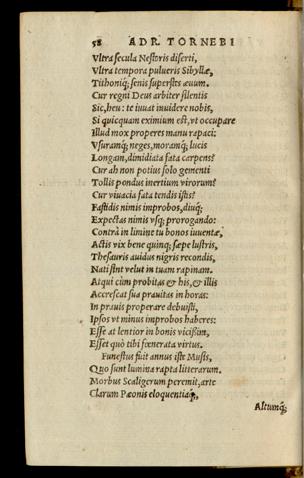 58 ADR. TORNEBI
Vltra secula Nestoris diserti,
Vltra tempora pulueris Sibyllæ,
Tithoniq́; senis superstes æuum.
Cur regni Deus arbiter silentis
Sic, heu: te iuuat inuidere nobis,
Si quicquam eximium est, vt occupare
Illud mox properes manu rapaci:
Vsuramq́; neges, moramq́; lucis
Longam, dimidiata fata carpens?
Cur ah non potius solo gementi
Tollis pondus inertium virorum?
Cur viuacia fata tendis istis?
Fastidis nimis improbos, diuq́;
Expectas nimis vsq; prorogando:
Contrà in limine tu bonos iuuentæ,
Actis vix bene quinq; sæpe lustris,
Thesauris auidus nigris recondis,
Nati sint velut in tuam rapinam.
Atqui cùm probitas & his, & illis
Accrescat sua prauitas in horas:
In prauis properare debuisti,
Ipsos vt minus improbos haberes:
Esse at lentior in bonis vicißim,
Esset quò tibi fœnerata virtus.
Funestus fuit annus iste Musis,
Quo sunt lumina rapta litterarum.
Morbus Scaligerum peremit, arte
Clarum Pæonis eloquentiaq́;,
Altumq́;